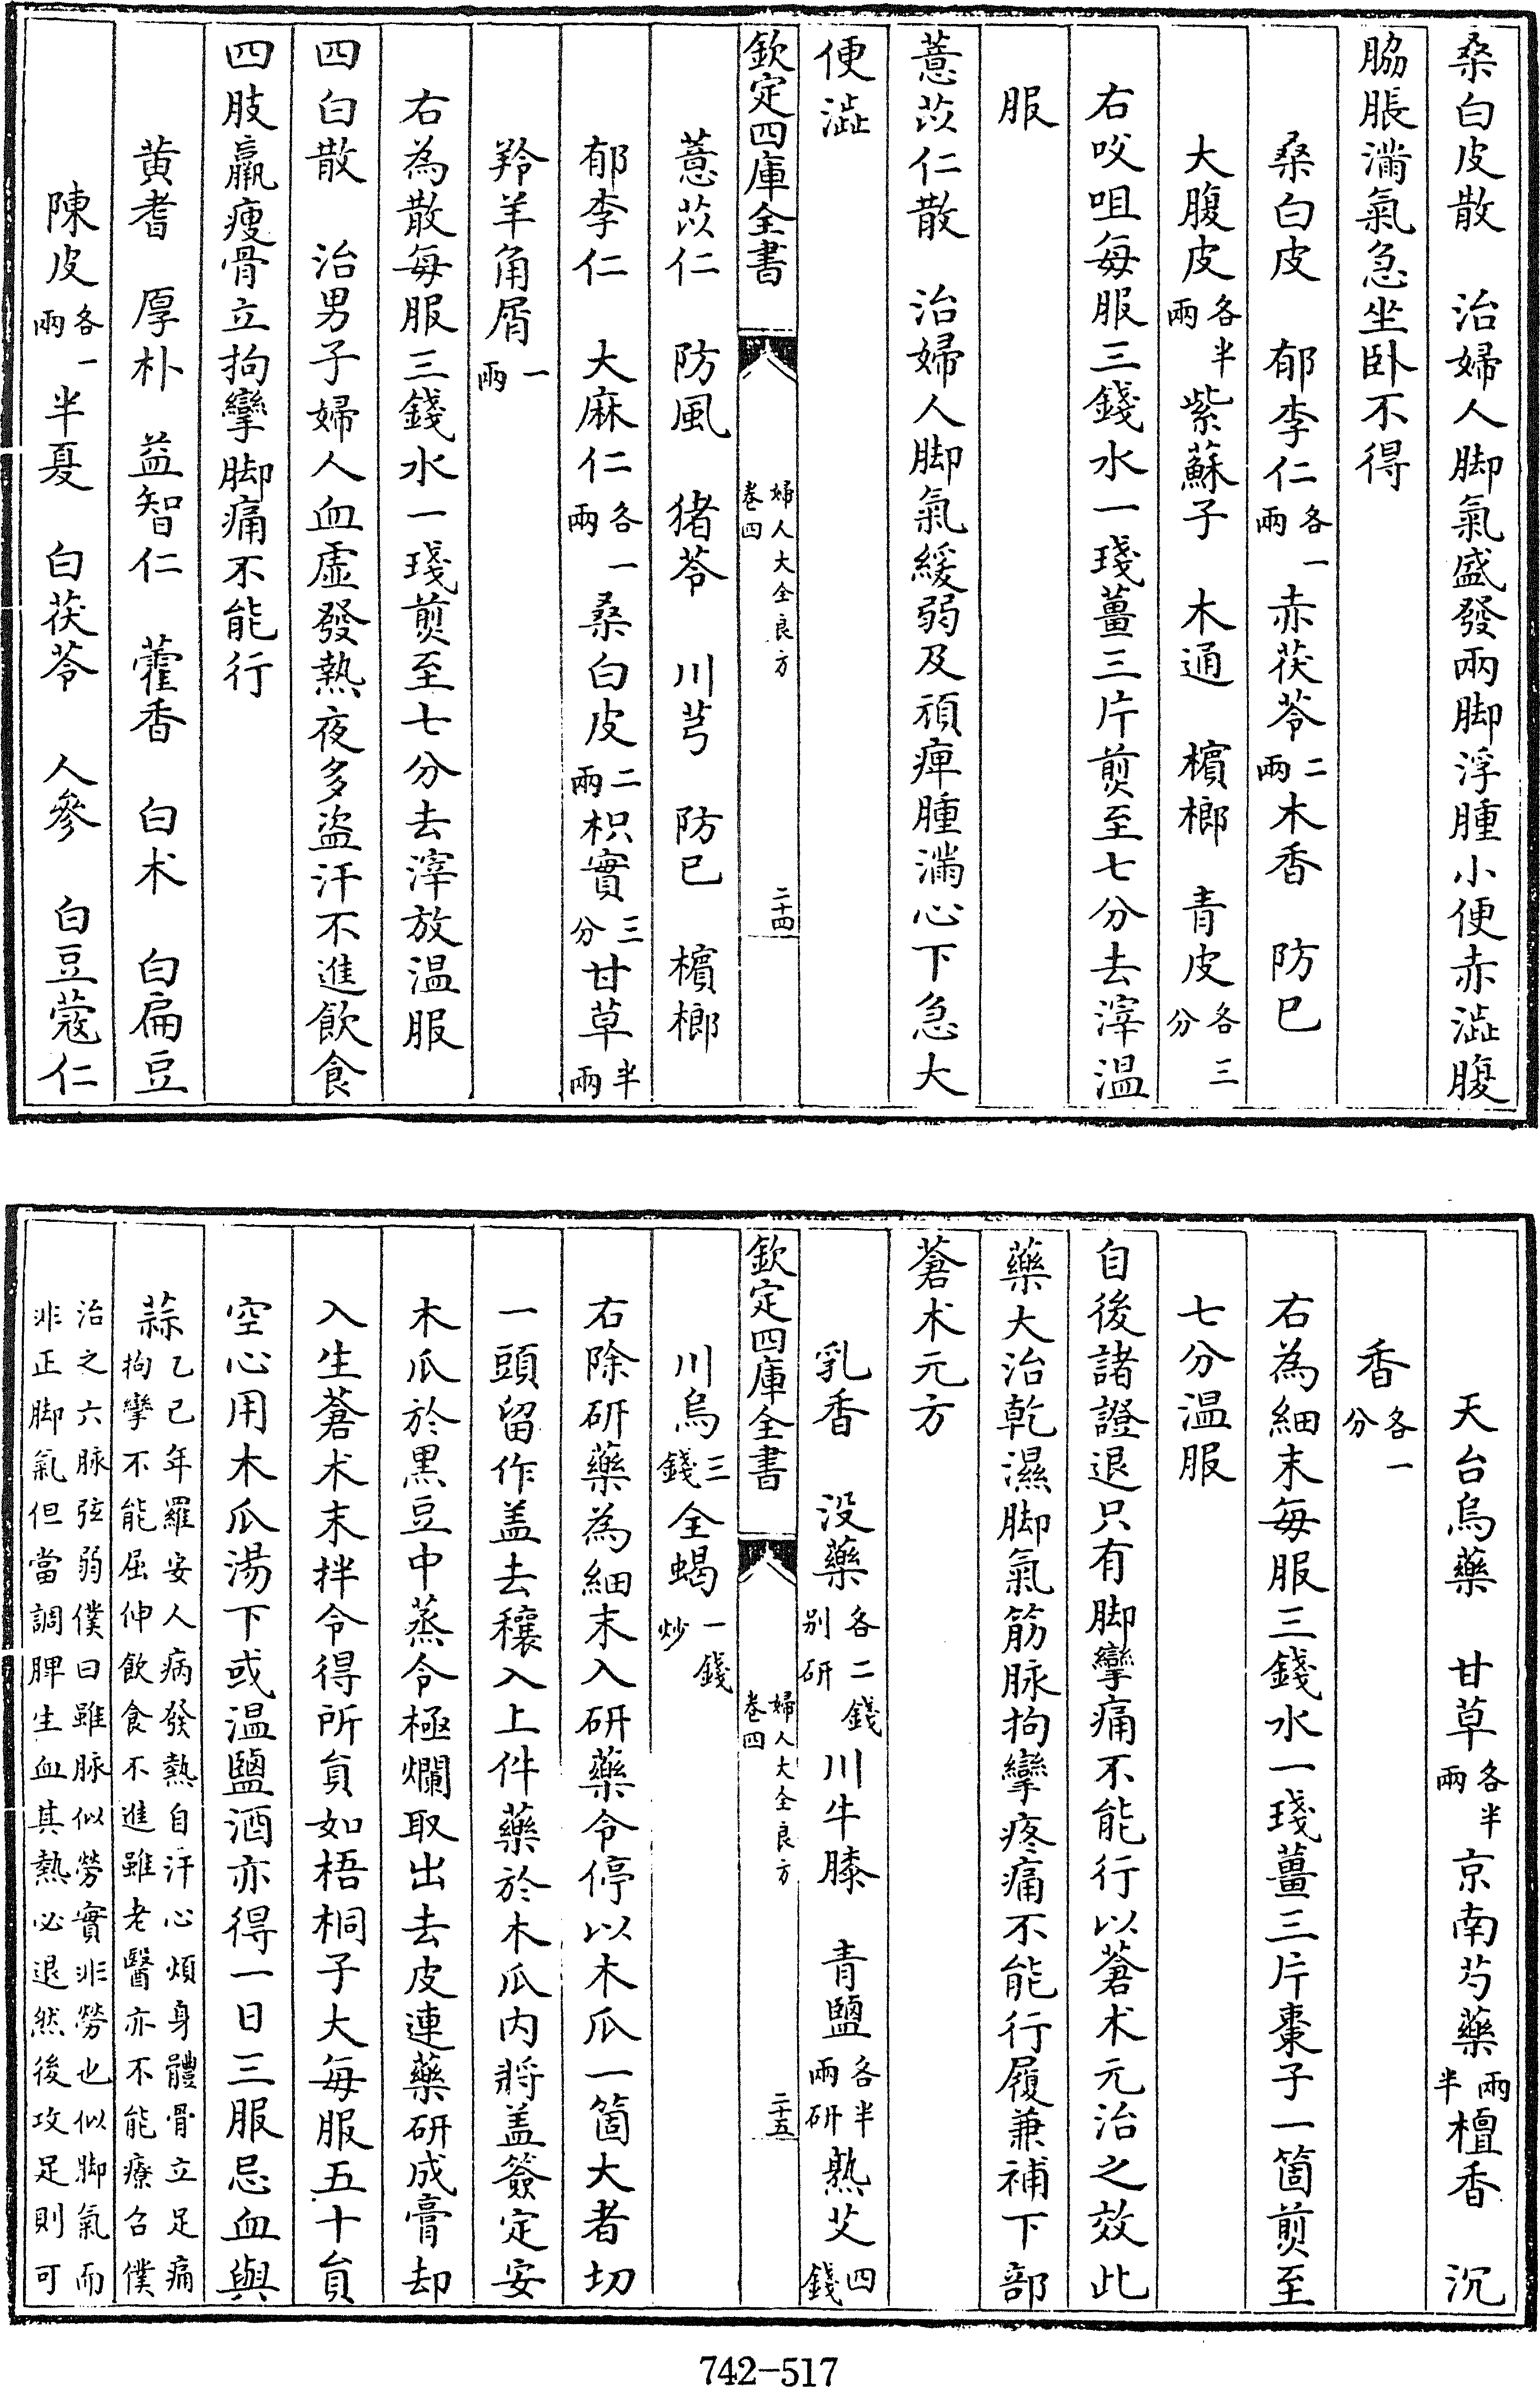 桑白皮散　治婦人脚氣盛發兩脚浮腫小便赤澁腹
脇脹滿氣急坐卧不得
桑白皮　郁李仁各一兩赤茯苓二兩木香　防已
大腹皮各半兩紫蘇子　木通　檳榔　青皮各三分
右㕮咀每服三錢水一琖薑三片煎至七分去滓温
服
薏苡仁散　治婦人脚氣緩弱及頑痺腫滿心下急大
便澁
欽定四庫全書　婦人大全良方卷四　二十四
薏苡仁　防風　猪苓　川芎　防已　檳榔
郁李仁　大麻仁各一兩桑白皮二兩枳實三分甘草半兩
羚羊角屑一兩
右為散每服三錢水一琖煎至七分去滓放温服
四白散　治男子婦人血虛發熱夜多盗汗不進飲食
四肢羸瘦骨立拘攣脚痛不能行
黄耆　厚朴　益智仁　藿香　白术　白扁豆
陳皮各一兩半夏　白茯苓　人參　白豆蔻仁
天台烏藥　甘草各半兩京南芍藥兩半檀香　沉
香各一分
右為細末每服三錢水一琖薑三片棗子一箇煎至
七分温服
自後諸證退只有脚攣痛不能行以蒼术元治之效此
藥大治乾濕脚氣筋脉拘攣疼痛不能行履兼補下部
蒼术元方
乳香　没藥各二錢别研川牛膝　青鹽各半兩研熟艾四錢
欽定四庫全書　婦人大全良方卷四　二十五
川烏三錢全蝎一錢炒
右除研藥為細末入研藥令停以木瓜一箇大者切
一頭留作盖去穰入上件藥於木瓜内將盖簽定安
木瓜於黑豆中蒸令極爛取出去皮連藥研成膏却
入生蒼术末拌令得所貟如梧桐子大每服五十貟
空心用木瓜湯下或温鹽酒亦得一日三服忌血與
蒜乙已年羅安人病發熱自汗心煩身體骨立足痛拘攣不能屈伸飲食不進雖老醫亦不能療召僕
治之六脉弦弱僕曰雖脉似勞實非勞也似脚氣而非正脚氣但當調脾生血其熱必退然後攻足則可
742-517